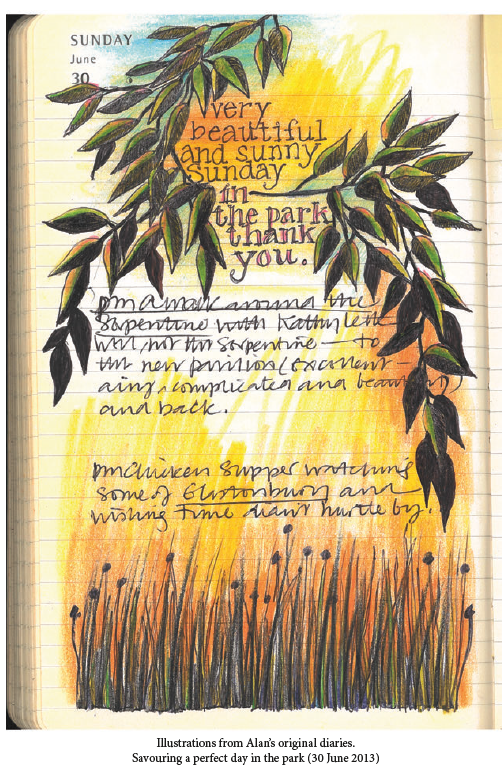 SUNDAY
June
30
very
beautiful
and sunny
Sunday
in
the park
thank
you.
pm a walk around the
Serpentine with Kathy Lette
well, not the Serpentine – to
the new pavilion (excellent –
airy, complicated and beautiful)
and back.
pm Chicken supper watching
some of Glastonbury and
wishing Time didn't hurtle by.
Illustrations from Alan's original diaries.
Savouring a perfect day in the park (30 June 2013)